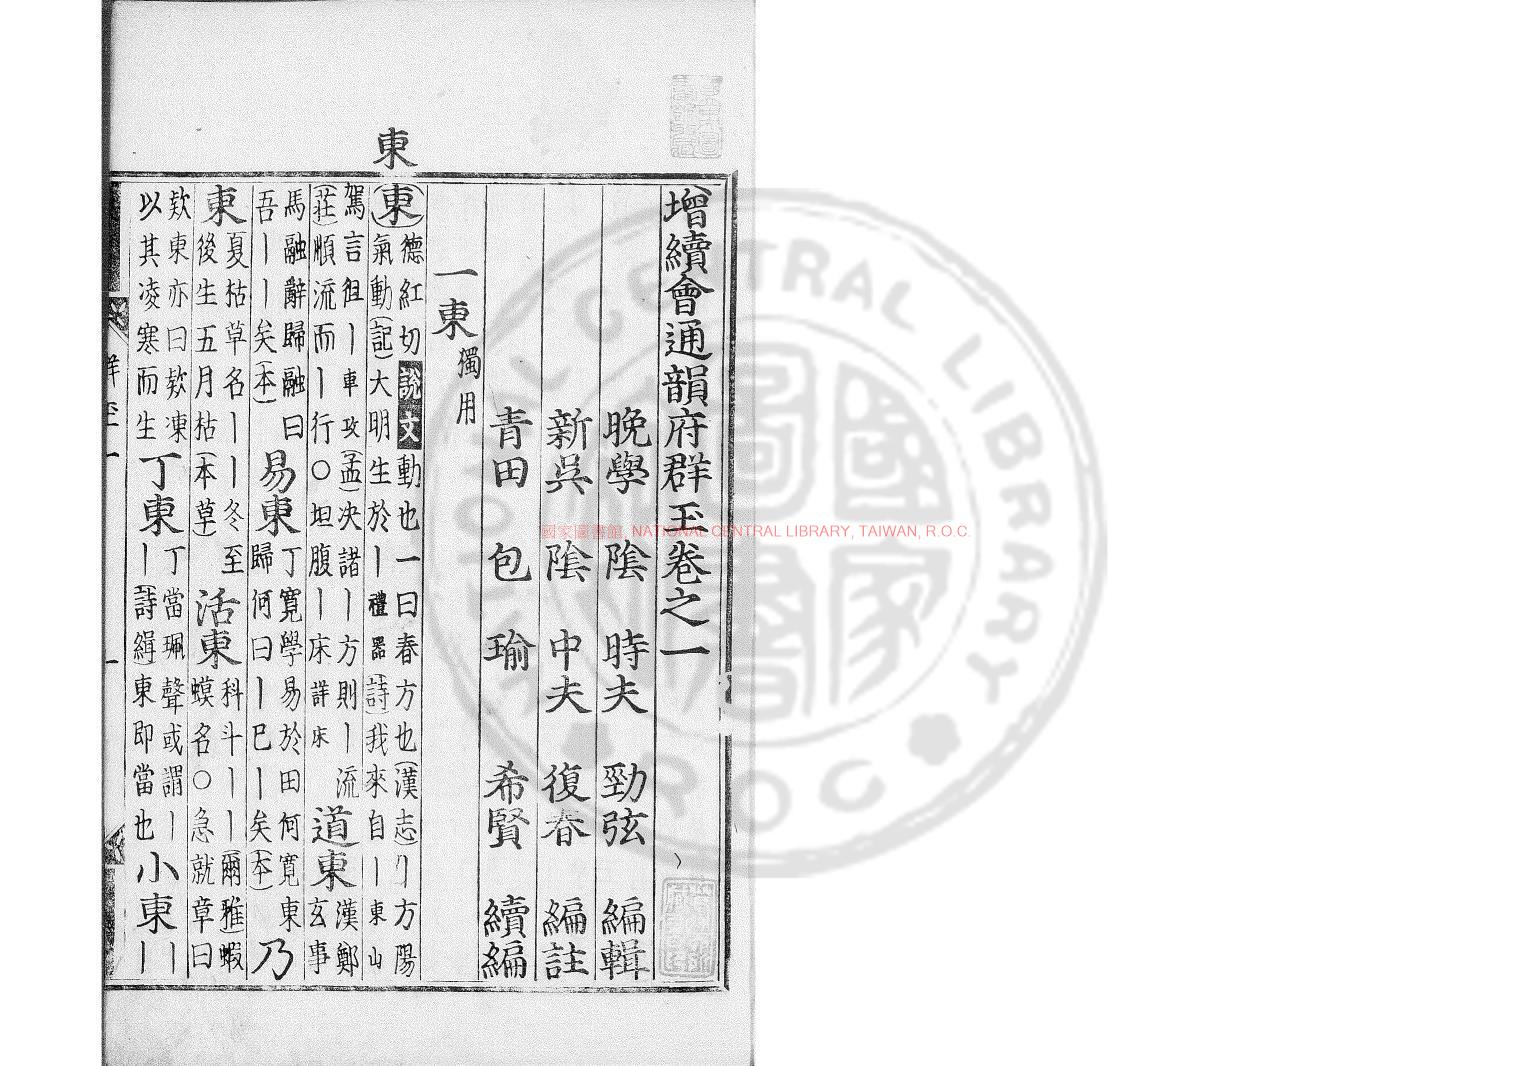 東
增續會通韻府群玉卷之一
晚學 陰 時夫 勁弦 編輯
新吳 陰 中夫 復春 編註
青田 包 瑜 希賢 續編
一東 獨用
(東)
德紅切說文動也一曰春方也(漢志)方陽
氣動(記)大明生於丨禮器(詩)我來自丨東山
駕言徂丨車攻(孟)決諸丨方則丨流
(莊)順流而丨行○坦腹丨床詳床
道東
漢鄭
玄事
馬融辭歸融曰
吾丨丨矣(本)
易東
丁寬學易於田何寬東
歸何曰丨巳丨矣(本)
乃
東
夏枯草名丨丨冬至
後生五月枯(本草)
活東
科斗丨丨(爾雅)蝦
蟆名○急就章曰
欵東亦曰欵凍
以其凌寒而生
丁東
丁當珮聲或謂丨丨
丨(詩緝)東即當也
小東
丨
國家圖書館, NATIONAL CENTRAL LIBRARY, TAIWAN, R.O.C.
NATIONAL CENTRAL LIBRARY
R.O.C.
國家圖書